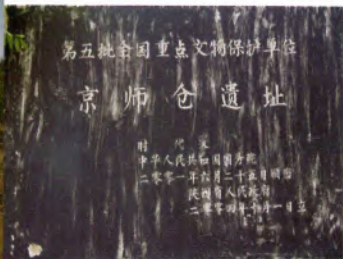 第五批全国重点文物保护单位
京师仓遗址
时代 汉
中华人民共和国国务院
二零零一年六月二十五日颁布
省人民政府
二零零四年十月一日立